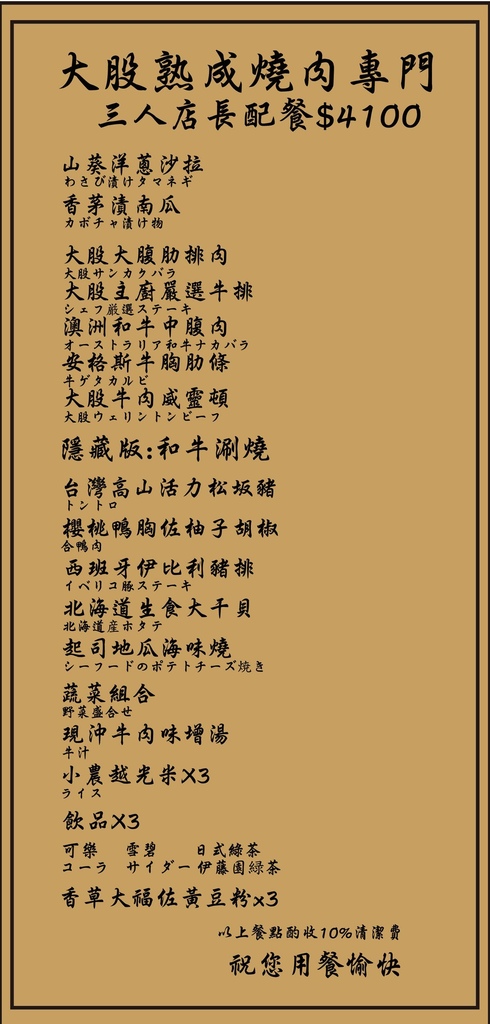 大股熟成燒肉專門
三人店長配餐$4100
山葵洋蔥沙拉
わさび漬けタマネギ
香茅漬南瓜
カボチャ漬け物
大股大腹肋排肉
大股サンカクバラ
大股主廚嚴選牛排
シェフ厳選ステーキ
澳洲和牛中腹肉
オーストラリア和牛ナカバラ
安格斯牛胸肋條
牛ゲタカルビ
大股牛肉威靈頓
大股ウェリントンビーフ
隱藏版:和牛涮燒
台灣高山活力松坂豬
トントロ
櫻桃鴨胸佐柚子胡椒
合鴨肉
西班牙伊比利豬排
イベリコ豚ステーキ
北海道生食大干貝
北海道産ホタテ
起司地瓜海味燒
シーフードのポテトチーズ焼き
蔬菜組合
野菜盛合せ
現沖牛肉味增湯
牛汁
小農越光米X3
ライス
飲品X3
可樂 雪碧 日式綠茶
コーラ サイダー 伊藤園緑茶
香草大福佐黃豆粉x3
以上餐點酌收10%清潔費
祝您用餐愉快